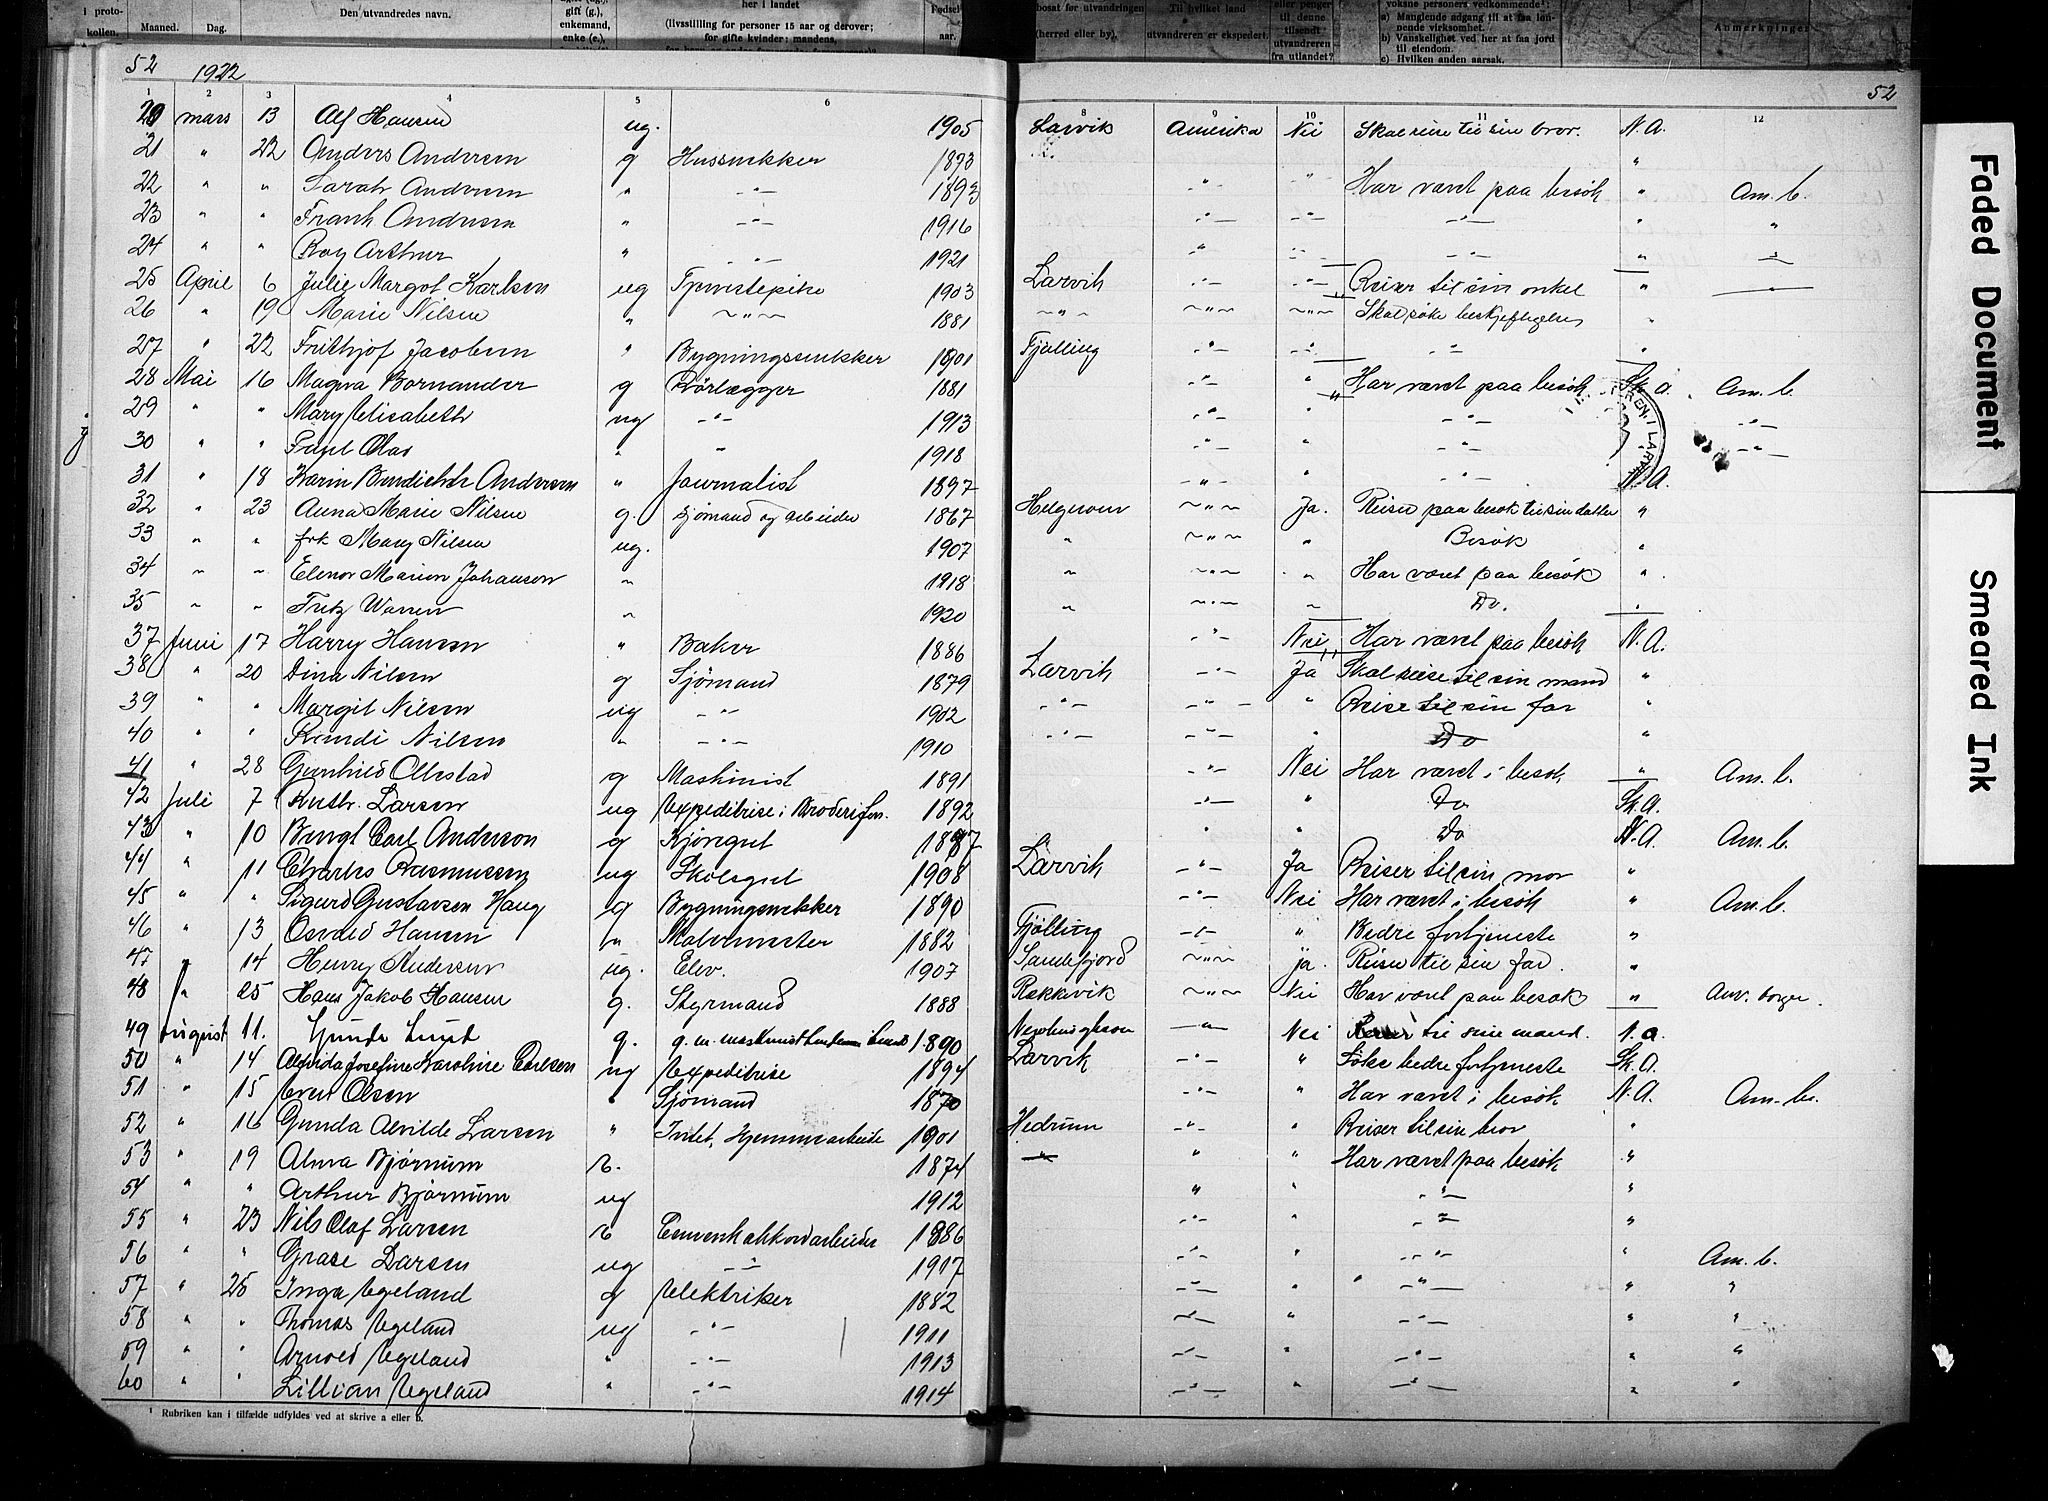 i proto-
kollen.
Maaned. Dag.
Den utvandredes navn.
gift (g.),
enkemand,
enke (e.),
her i landet
(livsstilling for personer 15 aar og derover;
for gifte kvinder: mandens,
Fødsels-
aar.
bosat før utvandringen
(herred eller by).
Til hvilket land
utvandreren er ekspedert.
eller penger
til denne
tilsendt
utvandreren
fra utlandet?
voksne personers vedkommende¹:
a) Manglende adgang til at faa løn-
nende virksomhet.
b) Vanskelighet ved her at faa jord
til eiendom.
c) Hvilken anden aarsak.
Anmerkninger
52 1922 52
1 2 3 4 5 6 8 9 10 11 12
20 mars 13 Alf Hansen ug. 1905 Larvik Amerika Nei Skal reise til sin bror. N.A.
21 " 22 Anders Andersen g Hussnekker 1873 "
22 " " Sarah Andersen " -"- 1893 -"- " Har været paa besøk " Am. b.
23 " " Frank Andersen " -"- 1916 -"- -"- -"- " "
24 " " Roy Arthur " -"- 1921 " -"- -"- " "
25 April 6 Julie Margot Karlsen ug Tjenestepike 1903 Larvik -"- -"- Reiser til sin onkel "
26 " 19 Marie Nilsen " -"- 1881 -"- -"- -"- Skal søke beskjeftigelse "
27 " 22 Frithjof Jacobsen " Bygningssnekker 1901 Tjølling -"- -"- -"- "
28 Mai 16 Magna Bornander g Rörlægger 1881 -"- " Har været paa besøk Sk. A. Am. b.
29 " " Mary Elisabeth ug -"- 1913 -"- " -"- -"-
30 " " Paul Olas " " 1918 -"- " -"- -"-
31 " 18 Karin Bendichte Andersen " Journalist 1897 -"- " -"- N.A.
32 " 23 Anna Marie Nilsen g. sjømand og arbeider 1867 Helgeroen -"- Ja. Reiser paa besøk til sin datter "
33 " " frk Mary Nilsen ug. 1907 " -"- " Besøk "
34 " " Elenor Marion Johansen " 1918 " -"- " Har været paa besøk "
35 " " Fritz Warren " 1920 " -"- " Do. "
37 Juni 17 Harry Hansen " Baker 1886 -"- Nei Har været paa besøk N.A.
38 " 20 Dina Nilsen g Sjømand 1879 Larvik -"- Ja Skal reise til sin mand "
39 " " Margit Nilsen ug -"- 1902 -"- -"- " Reise til sin far "
40 " " Randi Nilsen " -"- 1910 -"- -"- " Do "
41 " 28 Gunhild Ollestad g Maskinist 1891 -"- Nei Har været i besøk " Am. b.
42 Juli 7 Ruth Larsen ug Expeditrise i Broderifor. 1892 -"- " Do Sk. A.
43 " 10 Bengt Carl Anderson g Kjöregut 1887 " " Do N.A. Am. b.
44 " 11 Charles Rasmussen ug Skolegut 1908 Larvik -"- Ja Reiser til sin mor "
45 " " Sigurd Gustavsen Haug g Bygningsnekker 1890 -"- Nei Har været i besøk " Am. b.
46 " 13 Osvald Hansen " Malermester 1882 Tjølling -"- " Bedre fortjeneste "
47 " 14 Henry Andersen ug. Elev. 1907 Sandefjord -"- ja. Reiser til sin far. "
48 " 25 Hans Jakob Hansen g. Styrmand 1888 Rekkevik -"- Nei Har været paa besøk " Am. borger.
49 August 11. Gunda Lund g. 1890 -"- Nei Reiser til sin mand. N.A.
50 " 14 Alfrida Josefine Karoline Carlsen ug Expeditrise 1894 Larvik -"- " Söke bedre fortjeneste Sk. A.
51 " 15 Even Olsen " Sjömand 1870 -"- " Har været i besøk N.A. Am. b.
52 " 16 Gunda Alvilde Larsen " Intet, Hjemmearbeide 1901 Hedrum -"- " Reiser til sin bror "
53 " 19 Alma Bjørnum e. 1874 " " " Har været paa besøk "
54 " " Arthur Bjørnum ug 1912 " " -"- "
55 " 23 Nils Olaf Larsen e Cementakkordarbeider 1886 -"- " -"- "
56 " " Grase Larsen ug -"- 1917 -"- " -"- " Am. b.
57 " 25 Inga Egeland g Elektriker 1882 -"- " -"- " "
58 " " Thomas Egeland ug -"- 1911 -"- " -"- " "
59 " " Arnold Egeland " -"- 1913 -"- " -"- " "
60 " " Lillian Egeland " -"- 1914 -"- " -"- " "
¹ Rubriken kan i tilfælde udfyldes ved at skrive a eller b.
REN I LARVIK
Faded Document
Smeared Ink